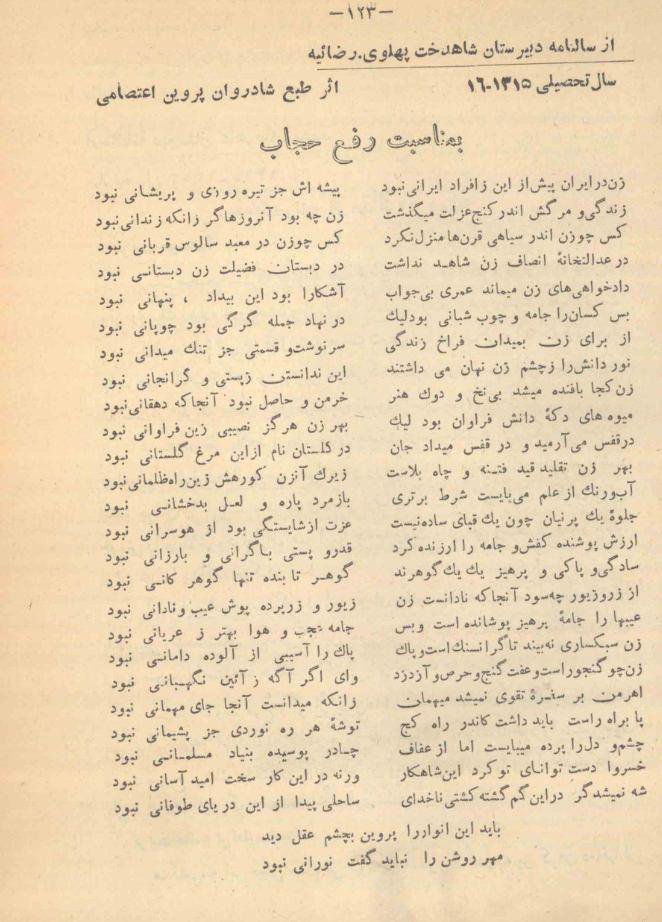 —۱۲۳—
از سالنامه دبیرستان شاهدخت پهلوی.رضائیه
سال تحصیلی ۱۳۱۵-۱۶ اثر طبع شادروان پروین اعتصامی
بمناسبت رفع حجاب
زن در ایران پیش از این ز افراد ایرانی نبود پیشه اش جز تیره روزی و پریشانی نبود
زندگی و مرگش اندر کنج عزلت میگذشت زن چه بود آنروزها گر زانکه زندانی نبود
کس چو زن اندر سیاهی قرن‌ها منزل نکرد کس چو زن در معبد سالوس قربانی نبود
در عدالتخانهٔ انصاف زن شاهد نداشت در دبستان فضیلت زن دبستانی نبود
دادخواهی‌های زن میماند عمری بی‌جواب آشکارا بود این بیداد ، پنهانی نبود
بس کسان را جامه و چوب شبانی بود لیك در نهاد جمله گرگی بود چوپانی نبود
از برای زن بمیدان فراخ زندگی سرنوشت و قسمتی جز تنك میدانی نبود
نور دانش را ز چشم زن نهان می داشتند این ندانستن ز پستی و گرانجانی نبود
زن کجا بافنده میشد بی نخ و دوك هنر خرمن و حاصل نبود آنجا که دهقانی نبود
میوه های دکهٔ دانش فراوان بود لیك بهر زن هرگز نصیبی زین فراوانی نبود
در قفس می آرمید و در قفس میداد جان در گلستان نام از این مرغ گلستانی نبود
بهر زن تقلید قید فتنه و چاه بلاست زیرك آنزن کو رهش زین راه ظلمانی نبود
آب و رنك از علم می‌بایست شرط برتری با زمرد یاره و لعل بدخشانی نبود
جلوهٔ یك پرنیان چون یك قبای ساده نیست عزت از شایستگی بود از هوسرانی نبود
ارزش پوشنده کفش و جامه را ارزنده کرد قدر و پستی باگرانی و بارزانی نبود
سادگی و پاکی و پرهیز یك یك گوهرند گوهر تابنده تنها گوهر کانی نبود
از زر و زیور چه سود آنجا که نادانست زن زیور و زر پرده پوش عیب و نادانی نبود
عیبها را جامهٔ پرهیز پوشانده است و بس جامه عجب و هوا بهتر ز عریانی نبود
زن سبکساری نه بیند تا گرانسنك است و پاك پاك را آسیبی از آلوده دامانی نبود
زن چو گنجور است و عفت گنج و حرص و آز دزد وای اگر آگه ز آئین نگهبانی نبود
اهرمن بر سفرهٔ تقوی نمیشد میهمان زانکه میدانست آنجا جای مهمانی نبود
پا براه راست باید داشت کاندر راه کج توشهٔ هر ره نوردی جز پشیمانی نبود
چشم و دل را پرده میبایست اما از عفاف چادر پوسیده بنیاد مسلمانی نبود
خسروا دست توانای تو کرد این شاهکار ورنه در این کار سخت امید آسانی نبود
شه نمیشد گر در این گم گشته کشتی ناخدای ساحلی پیدا از این دریای طوفانی نبود
باید این انوار را پروین بچشم عقل دید
مهر روشن را نباید گفت نورانی نبود